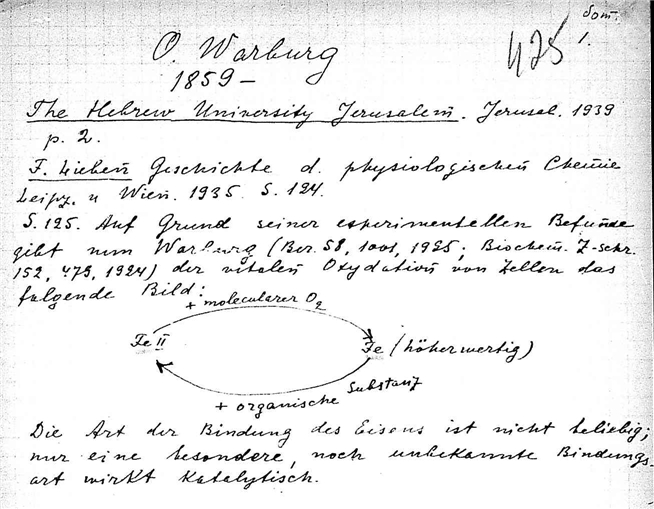 dom.
1.
425
O. Warburg
1859 –
The Hebrew University Jerusalem. Jerusal. 1939
p. 2.
F. Lieben Geschichte d. physiologischen Chemie
Leipz. u Wien. 1935. S. 124.
S. 125. Auf Grund seiner experimentellen Befunde
gibt nun Warburg (Ber. 58, 1001, 1925; Biochem. Z-schr.
152, 479, 1924) der vitalen Oxydation von Zellen das
folgende Bild:
+ molecularer O2
Fe II
Fe (höherwertig)
+ organische Substanz
Die Art der Bindung des Eisens ist nicht beliebig;
nur eine besondere, noch unbekannte Bindungs-
art wirkt katalytisch.